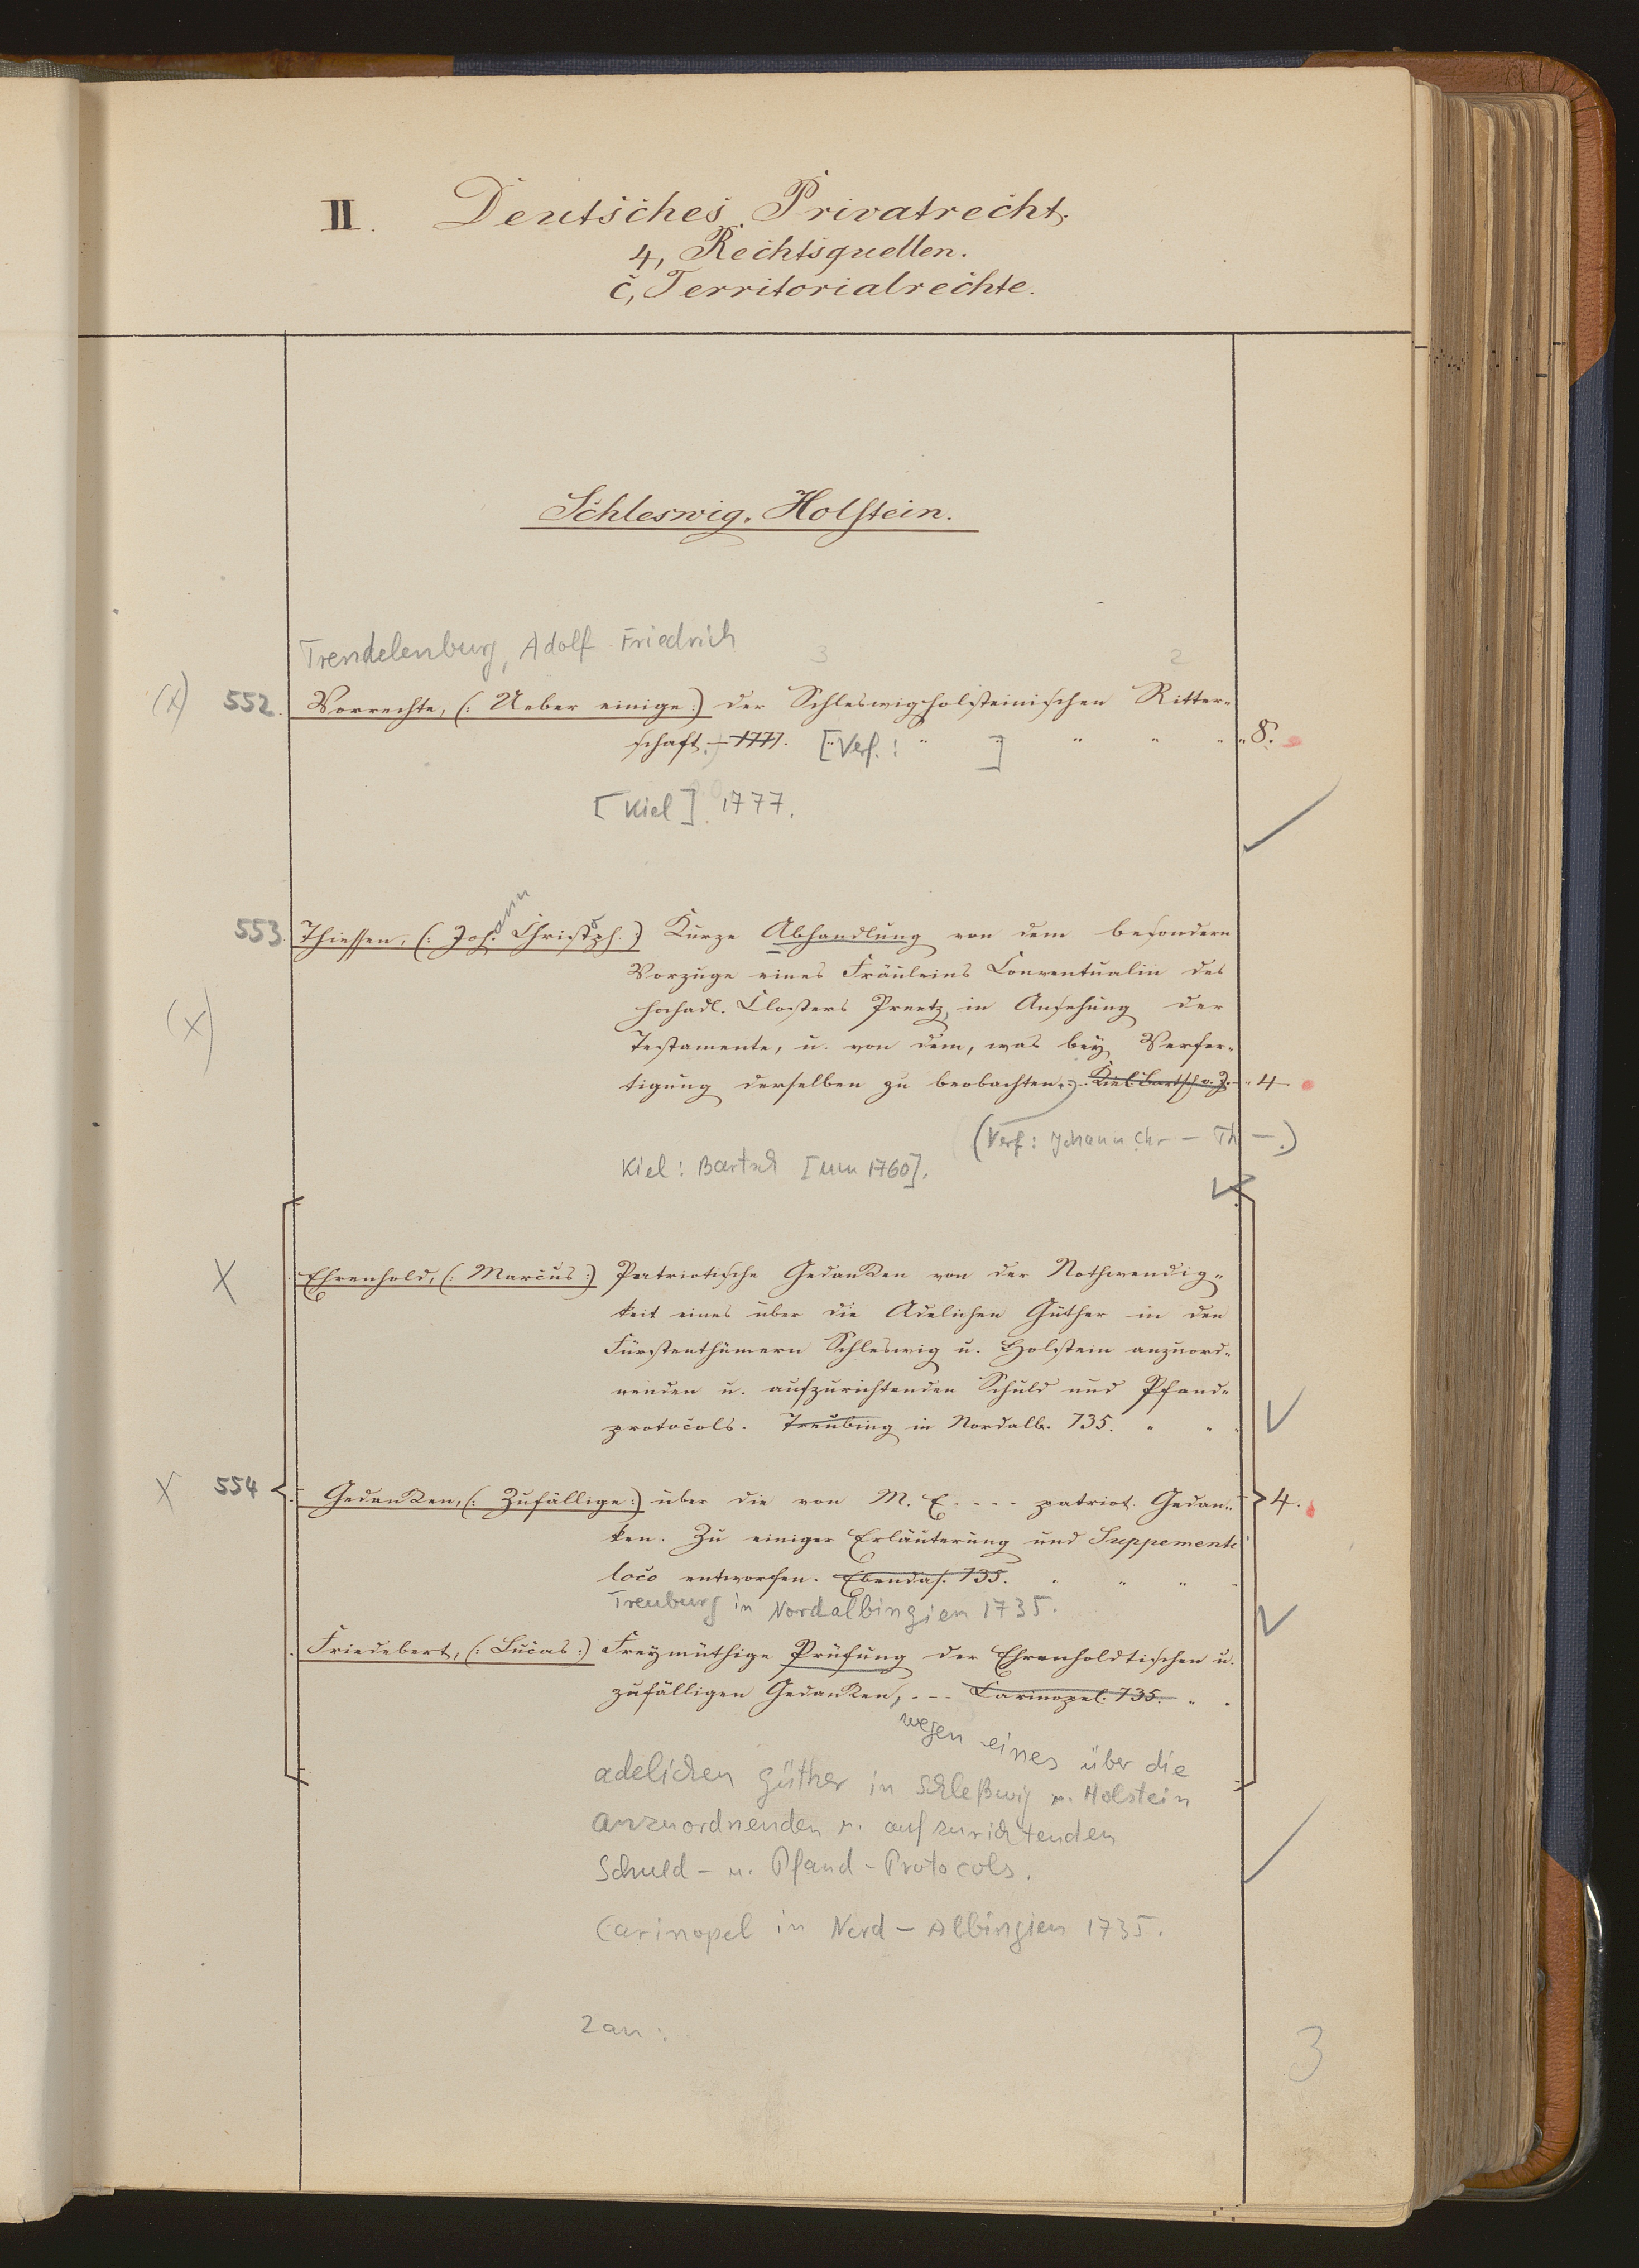 II. Deutsches Privatrecht.
4, Rechtsquellen.
c, Territorialrechte.
Schleswig-Holstein.
Trendelenburg, Adolf Friedrich
3 2
(X) 552. Vorrechte, (: Ueber einige :) der Schleswigholsteinischen Ritter-
schaft. – 1777. [Verf.: " ] " " " 8.
[Kiel]. 1777.
553. Thiessen, (: Joh.ann Christoph. :) Kurze Abhandlung von dem besondern
Vorzuge eines Fräuleins Conventualin des
(X) hochadl. Closters Preetz, in Ansehung der
Testamente, u. von dem, was bey Verfer-
tigung derselben zu beobachten. Kiel Bartsch o. J. 4.
(Verf: Johann Chr – Th –.)
Kiel: Bartsch [um 1760].
X Ehrenhold, (: Marcus :) Patriotische Gedanken von der Nothwendig-
keit eines über die Adelichen Güther in den
Fürstenthümern Schleswig u. Holstein anzuord-
nenden u. aufzurichtenden Schuld und Pfand-
protocols. Treubing in Nordalb. 735. " "
X 554 Gedanken, (: Zufällige :) über die von M. E. - - - - patriot. Gedan-
ken. Zu einiger Erläuterung und Suppementi
loco entworfen. Ebendas. 735. " " " 4.
Treuburg in Nordalbingien 1735.
Friedebert, (: Lucas :) Freymüthige Prüfung der Ehrenholdtischen u.
zufälligen Gedanken, - - - Carinopel. 735. " "
wegen eines über die
adelichen Güther in Schleßwig u. Holstein
anzuordnenden u. aufzurichtenden
Schuld- u. Pfand-Protocols.
Carinopel in Nord-Albingien 1735.
2 an:
3